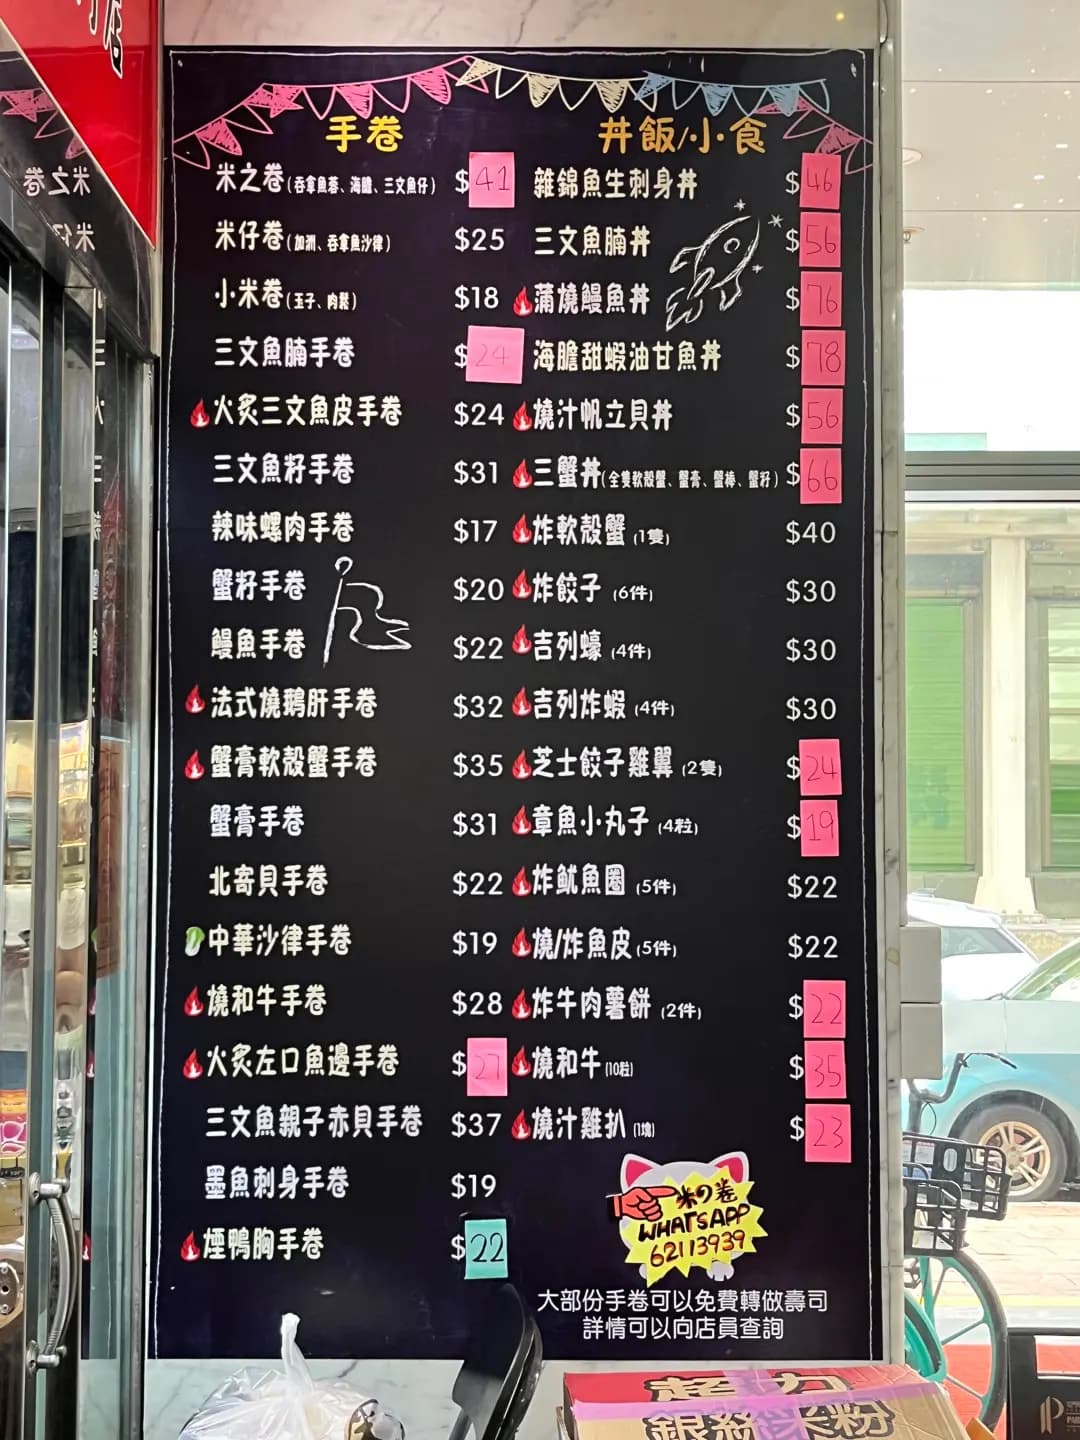 店
米之卷
手卷
米之卷(吞拿魚蓉、海膽、三文魚仔) $41
米仔卷(加洲、吞拿魚沙律) $25
小米卷(玉子、肉鬆) $18
三文魚腩手卷 $24
火炙三文魚皮手卷 $24
三文魚籽手卷 $31
辣味螺肉手卷 $17
蟹籽手卷 $20
鰻魚手卷 $22
法式燒鵝肝手卷 $32
蟹膏軟殼蟹手卷 $35
蟹膏手卷 $31
北寄貝手卷 $22
中華沙律手卷 $19
燒和牛手卷 $28
火炙左口魚邊手卷 $27
三文魚親子赤貝手卷 $37
墨魚刺身手卷 $19
煙鴨胸手卷 $22
丼飯/小食
雜錦魚生刺身丼 $46
三文魚腩丼 $56
蒲燒鰻魚丼 $76
海膽甜蝦油甘魚丼 $78
燒汁帆立貝丼 $56
三蟹丼(全隻軟殼蟹、蟹膏、蟹棒、蟹籽) $66
炸軟殼蟹 (1隻) $40
炸餃子 (6件) $30
吉列蠔 (4件) $30
吉列炸蝦 (4件) $30
芝士餃子雞翼 (2隻) $24
章魚小丸子 (4粒) $19
炸魷魚圈 (5件) $22
燒/炸魚皮 (5件) $22
炸牛肉薯餅 (2件) $22
燒和牛 (10粒) $35
燒汁雞扒 (1塊) $23
米の卷
WHATSAPP
62113939
大部份手卷可以免費轉做壽司
詳情可以向店員查詢
超力
銀絲米粉